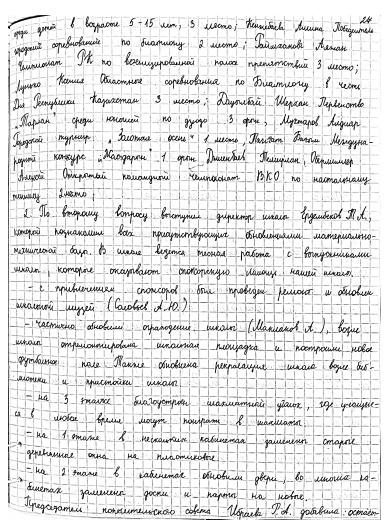 24
среди детей в возрасте 5-15 лет, 3 место; Кенжебаева Амина Победитель
городской соревнований по биатлону 2 место;
Чемпионат РК по военизированной полосе препятствий 3 место;
Ксения Областное соревнования по Биатлону в честь
Дня Республики Казахстан 3 место; Даулетбай Шерхан Первенство
"Тарлан" среди юношей по дзюдо 3 фон, Мухтаров Алдияр
Городской турнир "Золотая осень" 1 место,
родной конкурс "Жандарын" 1 фон, Темирлан,
Алексей Открытый командной Чемпионат ВКО по настольному
теннису 2 место;
2. По второму вопросу выступил директор школы Ердембеков М.А.,
который познакомил всех присутствующих обновлениями материально-
технической базы. В школе ведется тесная работа с выпускниками
школы, которые оказывают спонсорскую помощь нашей школе.
- с привлечением спонсоров был проведен ремонт и обновлен
школьной музей (Соловьев А.Ю.)
- частично обновили ограждение школы (Макланов А.), возле
школы отремонтирована школьная площадка и построили новое
футбольное поле. Также обновлена рекреация школы возле биб-
лиотеки и пристойки школы
- на 3 этаже благоустроен шахматной уголок, где учащие-
ся в любое время могут поиграть в шахматы
- на 1 этаже в нескольких кабинетах заменены старые
деревянные окна на пластиковое.
- на 2 этаже в кабинетах обновили двери, во многих ка-
бинетах заменены доски и парты на новое.
Председатель попечительского совета Ибраева Р.А. добавила: